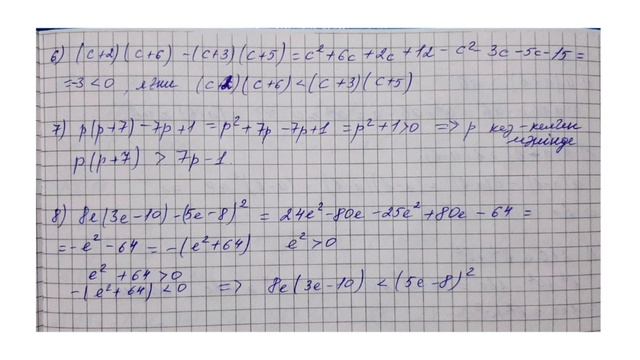 6) (c+2)(c+6) -(c+3)(c+5) = c²+6c+2c+12-c²-3c-5c-15=
=-3<0, яғни (c+2)(c+6)<(c+3)(c+5)
7) p(p+7)-7p+1 = p²+7p-7p+1 = p²+1>0 => p кез-келген
мәнінде
p(p+7) > 7p-1.
8) 8e(3e-10)-(5e-8)² = 24e²-80e-25e²+80e-64 =
=-e²-64=-(e²+64) e²>0
e²+64>0
-(e²+64)<0 => 8e(3e-10)<(5e-8)²